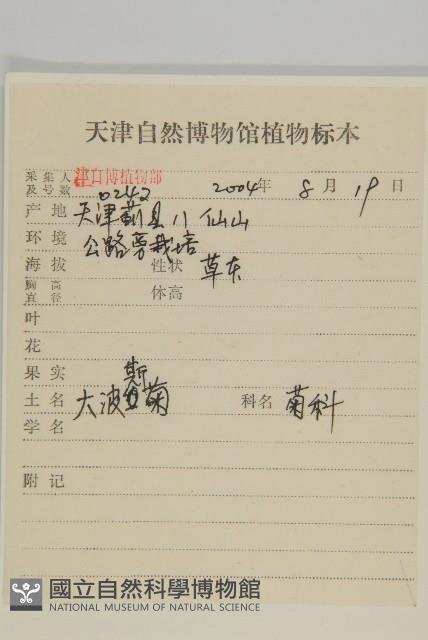 天津自然博物馆植物标本
采集人及号数 津自博植物部 0242 2004年 8月 19日
产地 天津蓟县八仙山
环境 公路旁栽培
海拔 性状 草本
胸高直径 体高
叶
花
果实
土名 大波斯菊 科名 菊科
学名
附记
國立自然科學博物館
NATIONAL MUSEUM OF NATURAL SCIENCE